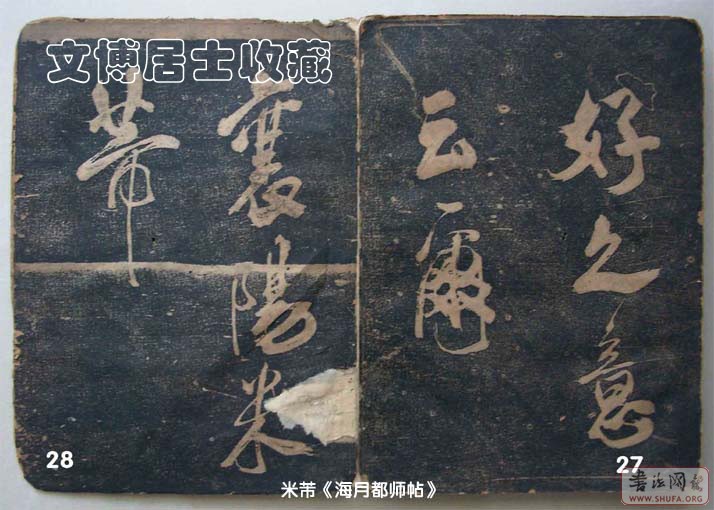 文博居士收藏
好之意
云爾
襄陽米
芾
28
27
米芾《海月都师帖》
書法网
WWW.SHUFA.ORG